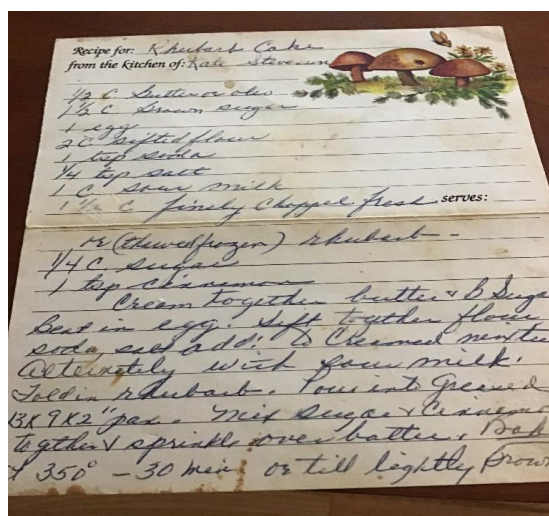 Recipe for: Rhubarb Cake
from the kitchen of: Kate Stevenson
1/2 C Butter or oleo
1 1/2 C Brown sugar
1 egg
2 C sifted flour
1 tsp soda
1/4 tsp salt
1 C sour milk
1 1/2 C finely Chopped fresh serves:
or (thawed frozen) rhubarb -
1/4 C sugar
1 tsp cinnamon
Cream together butter & B Suga
Beat in egg. Sift together flour
soda, add to Creamed mixtu
alternately with sour milk.
Fold in rhubarb. Pour into Greased
13X9X2" pan. Mix sugar & Cinnamo
together & sprinkle over batter. Bak
350° - 30 min or till lightly Brow